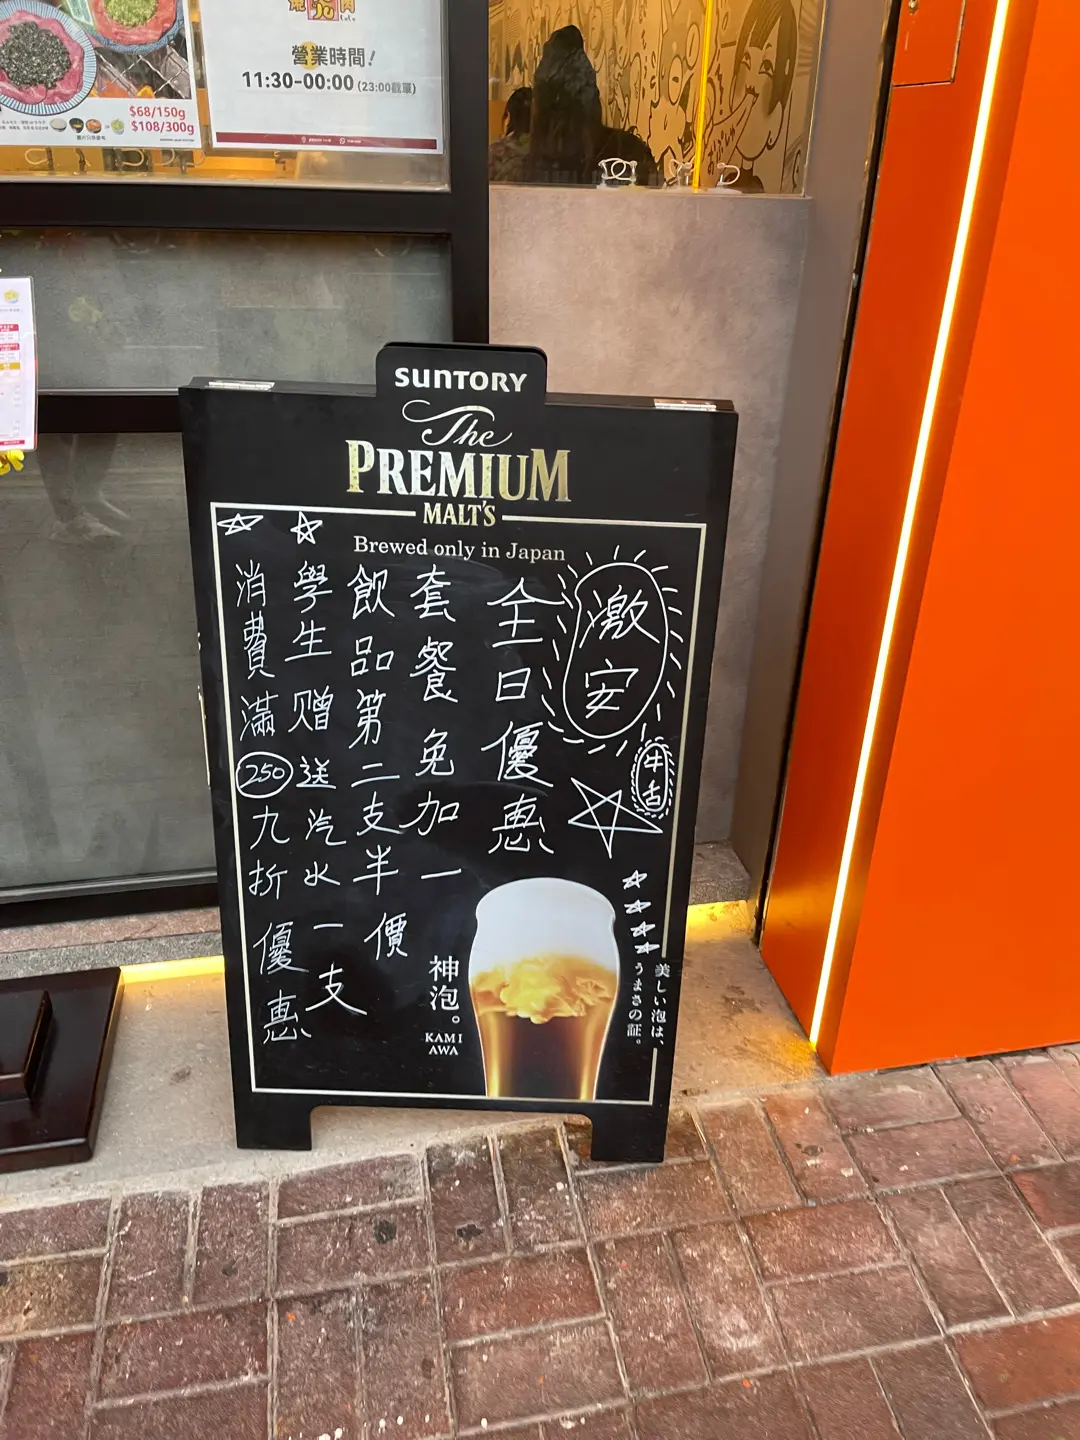 營業時間！
11:30-00:00 (23:00截單)
$68/150g
$108/300g
SUNTORY
The
PREMIUM
MALT'S
Brewed only in Japan
激安
牛舌
全日優惠
套餐免加一
飲品第二支半價
學生赠送汽水一支
消費滿250九折優惠
美しい泡は、
うまさの証。
神泡。
KAMI
AWA